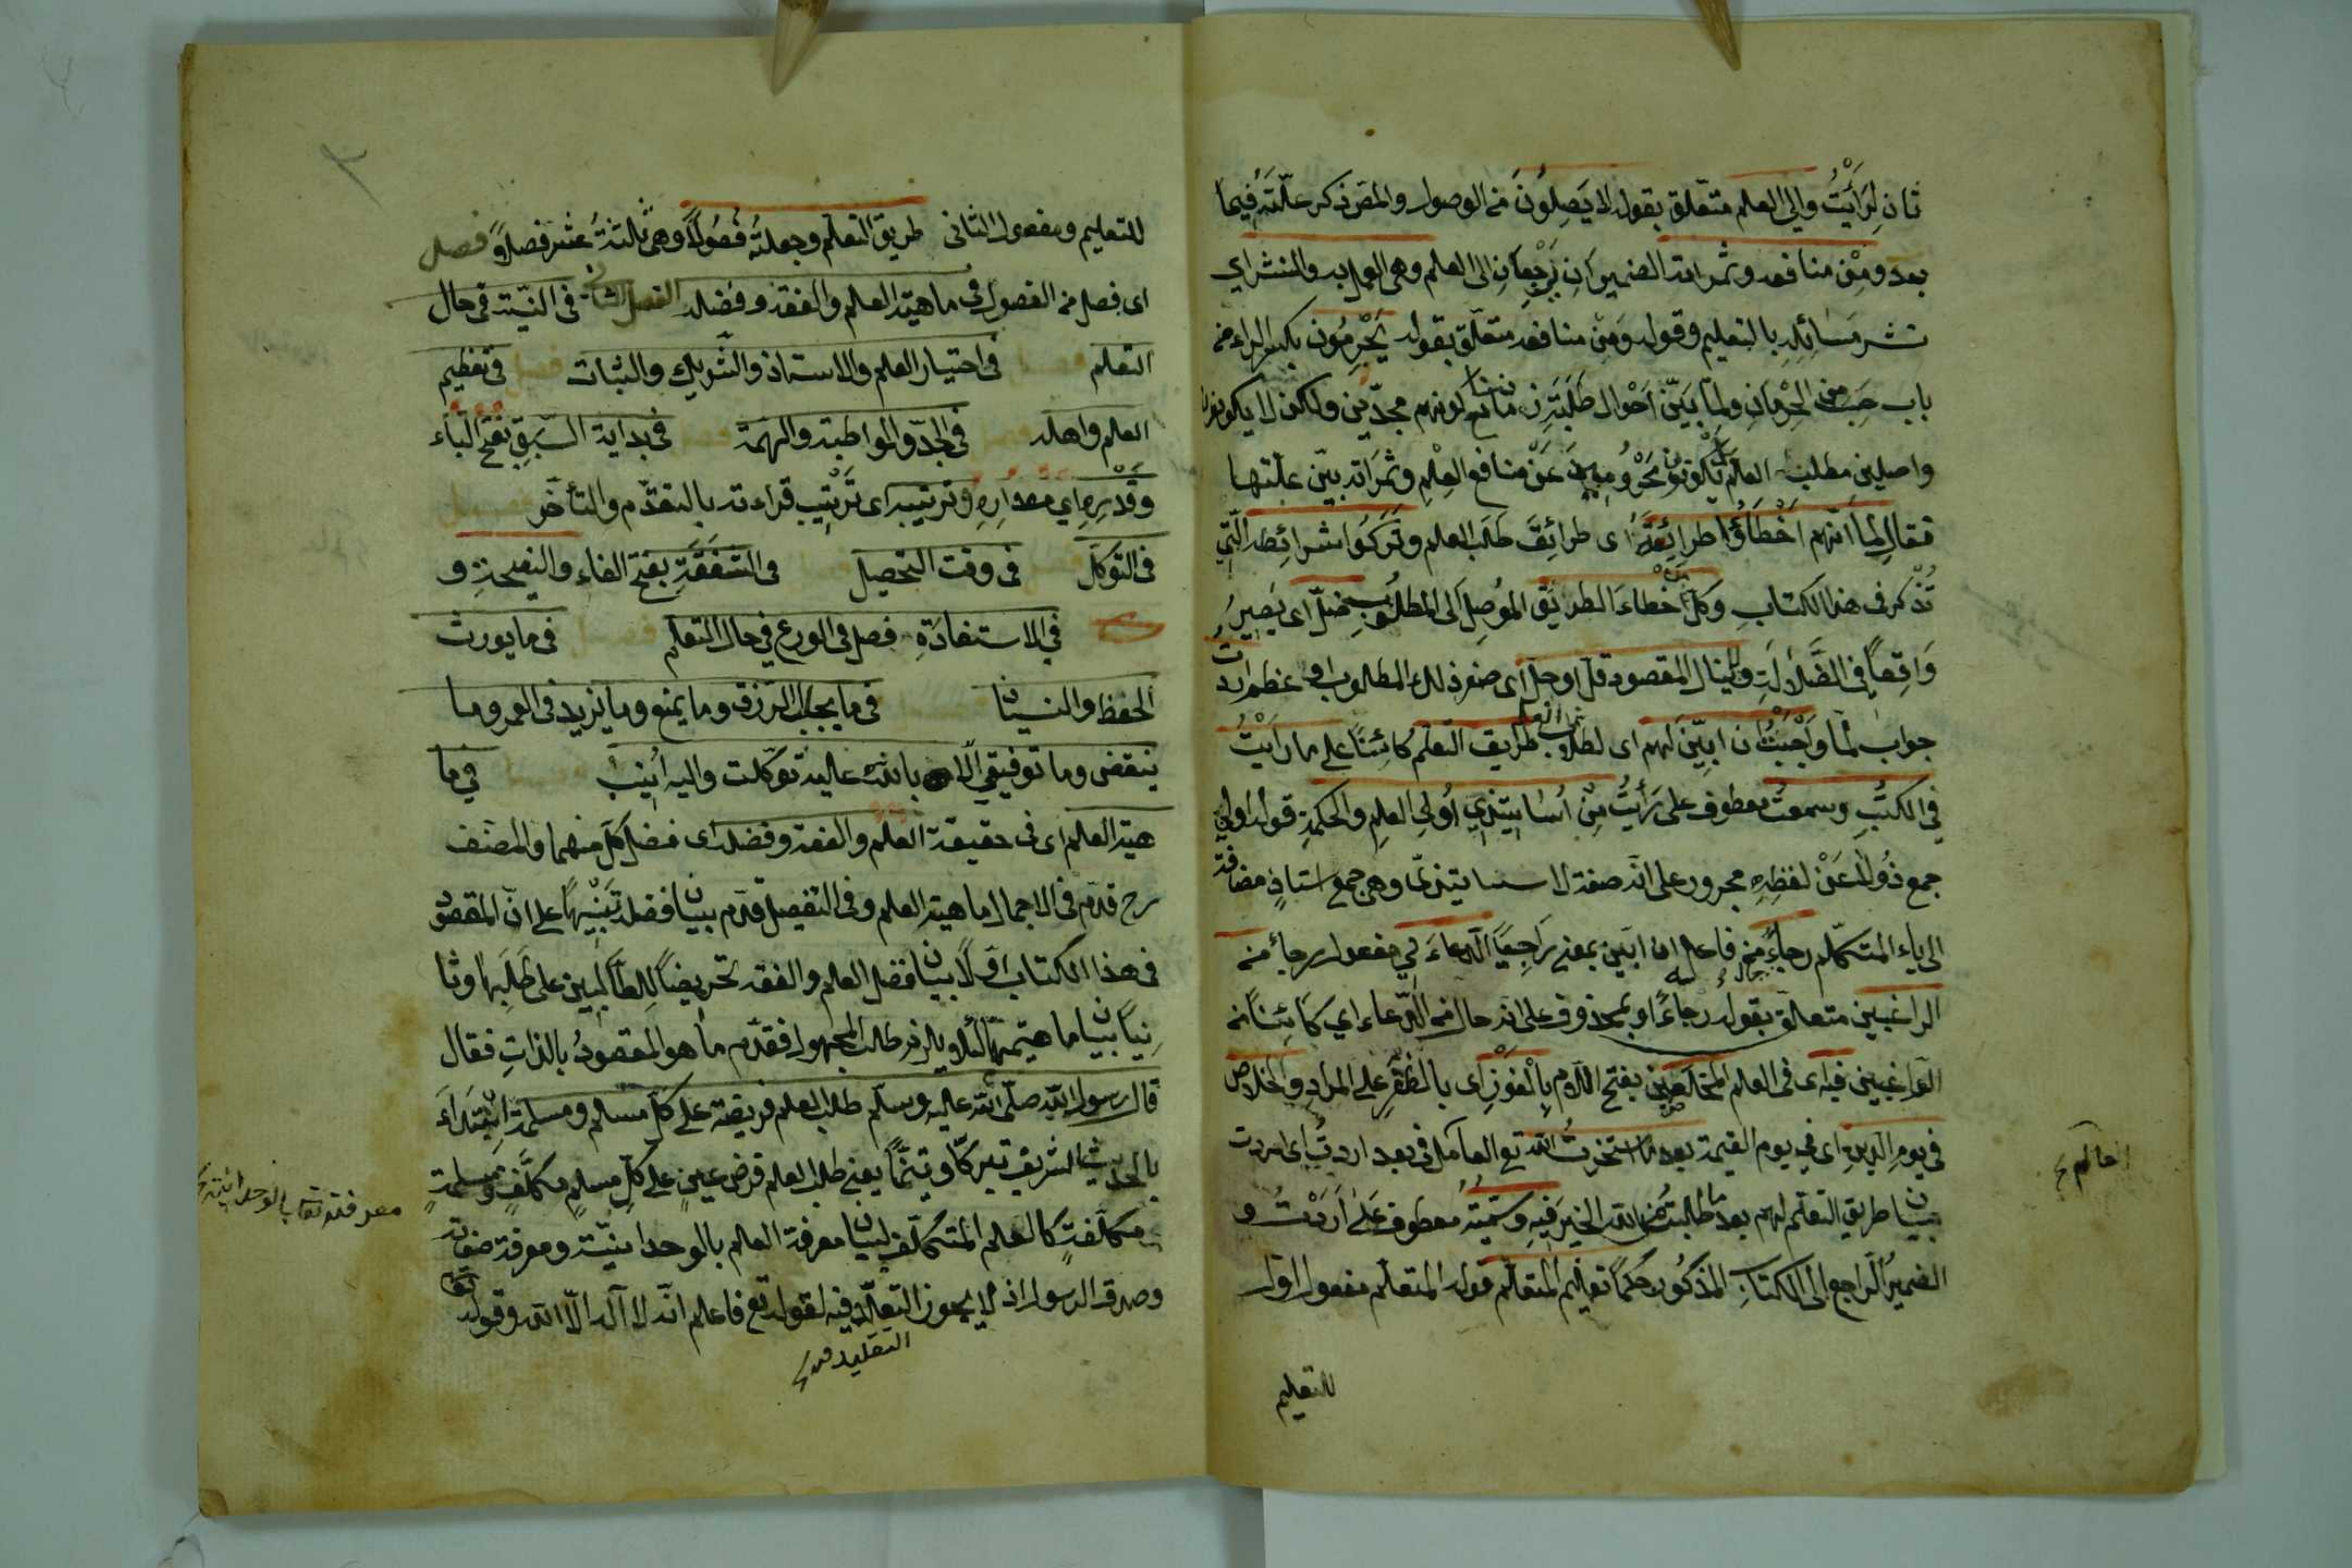 ثانٍ لِرَأَيْتُ والى العلم متعلّق بقوله لا يَصِلُونَ من الوصول والمص ذكر علّتَهُ فيما
بعد ومِنْ منافعه وثمراته الضميران يَرْجِعَانِ الى العلم وهى العمل به والنشر اى
نشر مَسَائِلِهِ بالتعليم وقوله وَمِن منافعه متعلّق بقوله يَحْرِمُون بكسر الراء من
باب حَسِبَ من الحِرْمانِ ولمّا بَيّن اَحْوال طَلَبَةِ زماننا مع كونهم مجدّين ولكن لا يكونون
واصلين مطلب العلم بل يكونون مَحْرُومِينَ عَنْ منافع العِلْمِ وثمَرَاته بيّن علّتها
فقال لِمَا انّهم اَخْطَاؤُا طرائِقَهُ اى طرائِقَ طَلَب العلم وتَرَكُوا شرائِطه الَّتِي
تُذْكر فى هذا الكتاب وكلّ مَنْ اَخْطاءَ الطريق المُوصِل الى المطلُوبِ ضلّ اى يَصِيرُ
وَاقِعاً فى الضَّلاَلَةِ ولا ينال المقصود قلّ او جلّ اى صغر ذلك المطلوب او عظم اردت
جواب لَمّا واَحْبَبْتُ ان ابيّنَ لهم اى لطلاب العلم طريق التعلّم كائِناً على ما رَاَيْتُ
فى الكتُبِ وسمعتُ معطوف على رَأَيْتُ مِنْ اَسَاتِيذِي اُولِى العلمِ والحكمةِ قوله اولى
جمع ذُو لا عَنْ لفظِهِ مجرور على انّه صفة لاساتيذى وهى جمع استاذٍ مضافة
الى ياء المتكلّم رجاءً من فاعل ان ابيّن بمعنى رَاجِياً الدّعاءَ لِي مفعول رجاءً من
الراغبين متعلّق بقوله رجاءً او بمحذوف على انّه حال من الدّعاء اى كائِناً من
الراغبين فيه اى فى العلم المخلَصين بفتح اللام بِالْفَوْزِ اى بالظّفَرِ على المراد والخلاص
فى يومِ الدّينِ اى فى يوم القيمة بعد ما استخرتُ اللّه تع العامل فى بعد اردتُ اى اردت
بيان طريق التعلّم لهم بعد ما طلبتُ من اللّه الخيرَ فيهِ وسمّيتُهُ معطوف عَلَى اَرَدْتُ و
الضميرُ الرّاجع الى الكتابِ المذكُور حُكْماً تعليم المتعلّم قوله المتعلّم مفعول اوّل
للتعليم
العالم
للتعليم ومفعوله الثانى طريق التعلّم وجعلتُه فُصُولاً وهى ثَلثةُ عَشَر فصلاً فصل
اى فصل من الفصول فى ماهيّة العلم والفقه وفضله الفصل الثانى فى النيّة فى حال
التعلم فصل فى اختيار العلم والاستاذ والشّريك والثّبات فصل فى تعظيم
العلم واهله فصل فى الجدّ والمواظبة والهمّة فصل فى بداية السَّبقِ بفتح الباء
وقَدْرِهِ اي مقدارِهِ وترتيبه اى تَرْتِيب قراءته بالتقدّم والتأخّر فصل
فى التوكّل فصل فى وقت التحصيل فصل فى الشفَقَةِ بفتح الفاء والنصيحةِ و
فصل فِي الاستفادَةِ فصل فى الورع فى حال التعلّم فصل فى ما يورث
الحفظ والنسيان فصل فى ما يجلب الرّزق وما يمنع وما يزيد فى العمر وما
ينقص وما توفيقى الّا باللّه عليه توكّلت واليه اُنِيبُ فصل فى ما
هيّة العلم اى فى حقيقة العلم والفقه وفضله اى فضل كلّ منهما والمصنّف
رح قدّم فى الاجمال ماهيّة العلم وفى التفصيل قدّم بيان فضله تَنْبِيهاً على انّ المقصود
فى هذا الكتاب اوّلاً بيان فضل العلم والفقه تحريضاً لِلطّالِبين على طَلَبِها وثا
نِياً بيان ماهيّتهما لئلّا يلزم طلب المجهول فقدّم ما هو المقصودُ بالذاتِ فقال
قال رسول اللّه صلّى اللّه عليه وسلّم طلب العلم فريضة على كلّ مسلم ومسلمة اِبْتَدَاءَ
بالحديث الشريف تبرّكاً وتيمّناً يعنى طلب العلم فرض عينٍ على كلّ مسلمٍ مكلّفٍ ومسلمةٍ
مكلّفةٍ كالعلم المتكلّف لبيان معرفة العلم بالوحدانيّة ومعرفة صفاته
وصدق الرسول اذ لا يجوز التقليد فيه لقوله تع فاعلم انّه لا اله الّا اللّه وقوله تعالى
التقليد
معرفته تعالى بالوحدانيّة